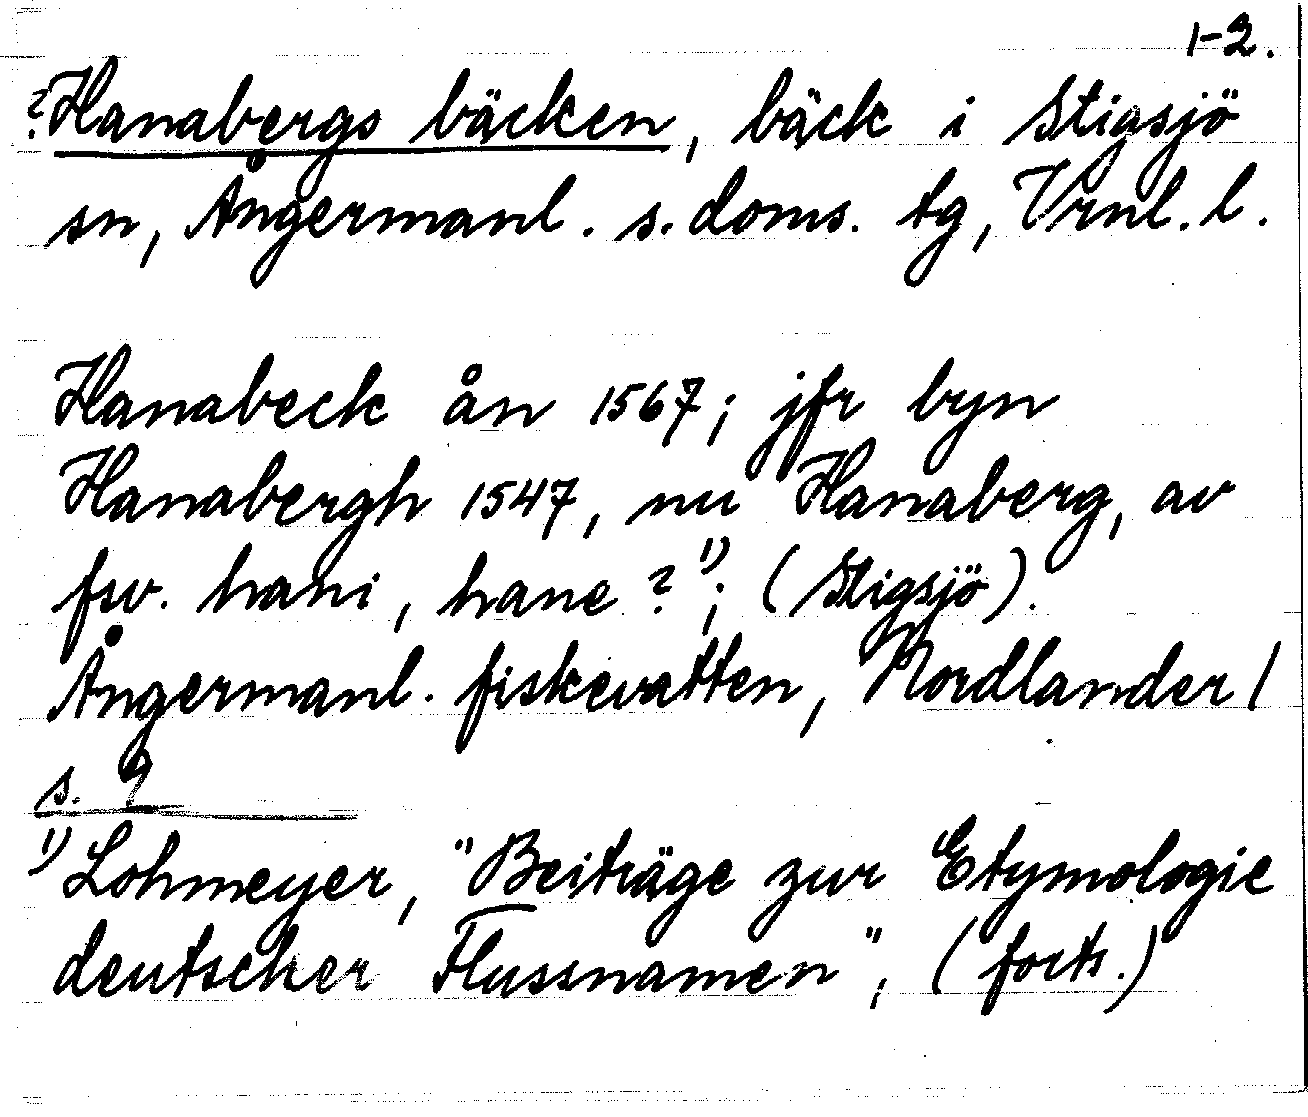 1-2.
?Hanabergs bäcken, bäck i Stigsjö
sn, Ångermanl. s. doms. tg, Vrnl. l.
Hanabeck ån 1567; jfr byn
Hanabergh 1547, nu Hanaberg, av
fsv. hani, hane?¹⁾; (Stigsjö).
Ångermanl. fiskevatten, Nordlander /
s. 9
¹⁾ Lohmeyer, "Beiträge zur Etymologie
deutscher Flussnamen"; (forts.)